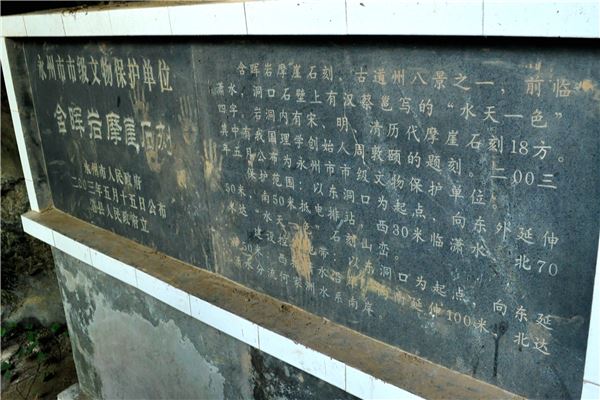 永州市市级文物保护单位
含晖岩摩崖石刻
永州市人民政府
二〇〇三年五月十五日公布
道县人民政府立
含晖岩摩崖石刻，古道州八景之一，前临
潇水，洞口石壁上有汉蔡邕写的“水天一色”
四字，岩洞内有宋、明、清历代摩崖石刻18方。
其中有我国理学创始人周敦颐的题刻。二00三
年五月公布为永州市市级文物保护单位。
保护范围：以东洞口为起点，向东外延伸
50米，南50米抵电排站，西30米临潇水，北70
米达“水天一色”石刻山峦。
建设控制地带：以东洞口为起点，向东延
50米，西
延伸100米，北达